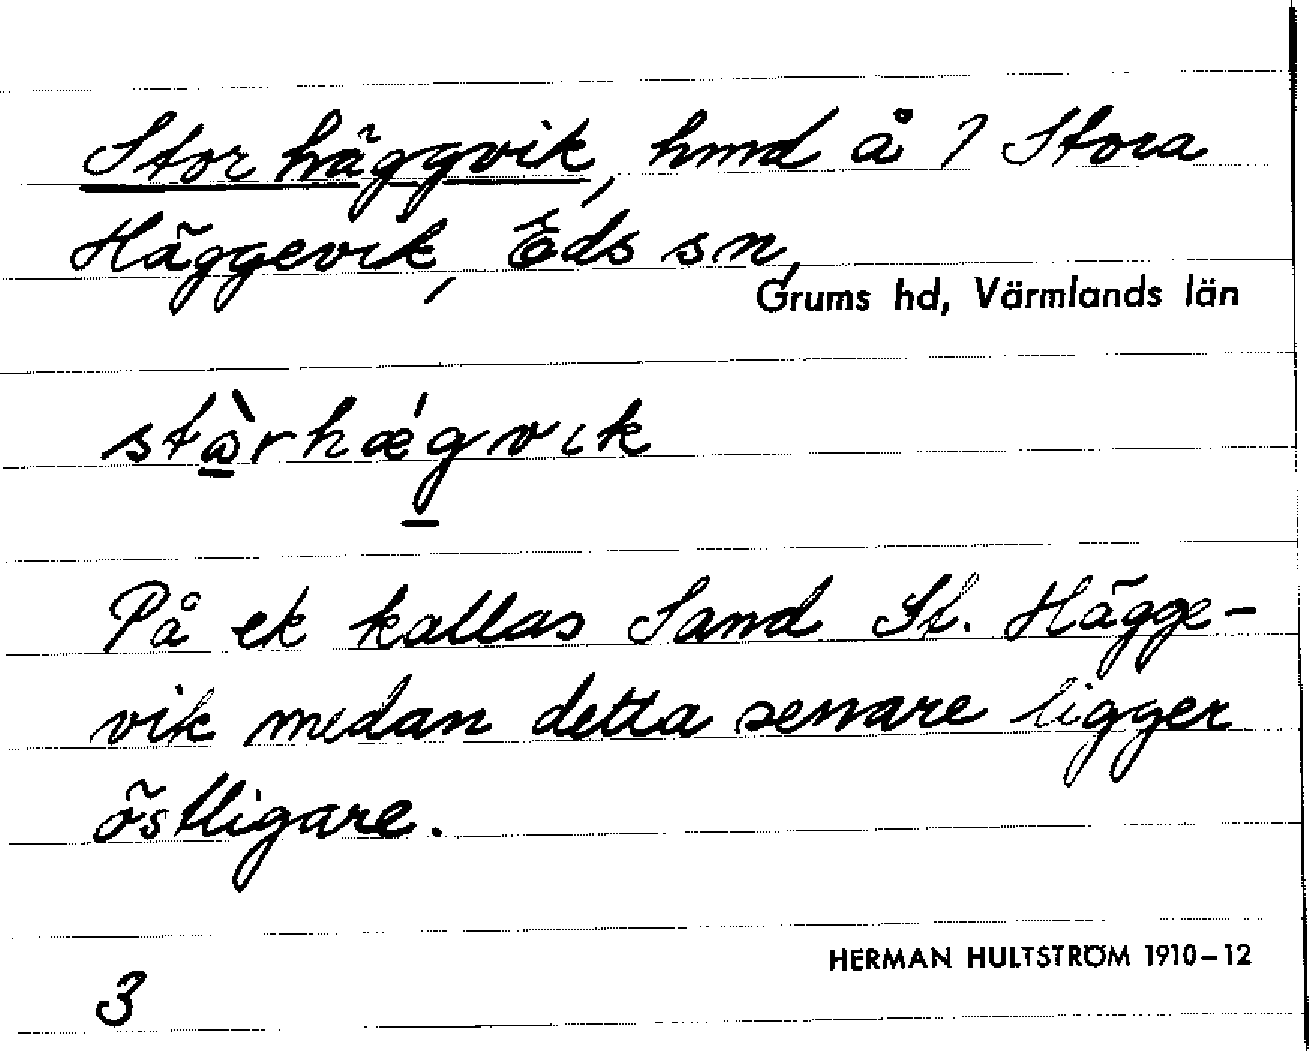 Storhäggvik, hmd å 1 Stora
Häggevik, Eds sn,
Grums hd, Värmlands län
stàrhǽgvık
På ek kallas Sand St. Hägge-
vik medan detta senare ligger
östligare.
HERMAN HULTSTRÖM 1910–12
3